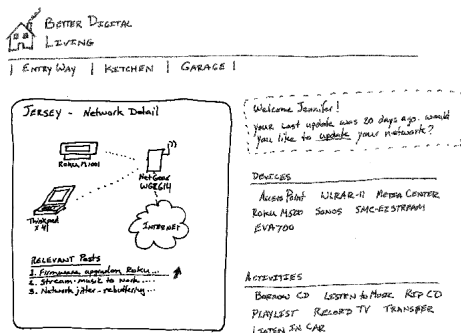 BETTER DIGITAL
LIVING
| ENTRY WAY | KITCHEN | GARAGE |
JERSEY - Network Detail
Roku M1001
NetGear
WGR614
Thinkpad
X41
INTERNET
RELEVANT Posts
1. Firmware upgrade on Roku...
2. Stream music to work...
3. Network jitter - rebuffering...
Welcome Jennifer!
your last update was 20 days ago. would
you like to update your network?
DEVICES
Access Point MEDIA CENTER
Roku M500 SONOS SMC-EZSTREAM
EVA700
ACTIVITIES
BORROW CD LISTEN TO MUSIC RIP CD
PLAYLIST RECORD TV TRANSFER
LISTEN IN CAR